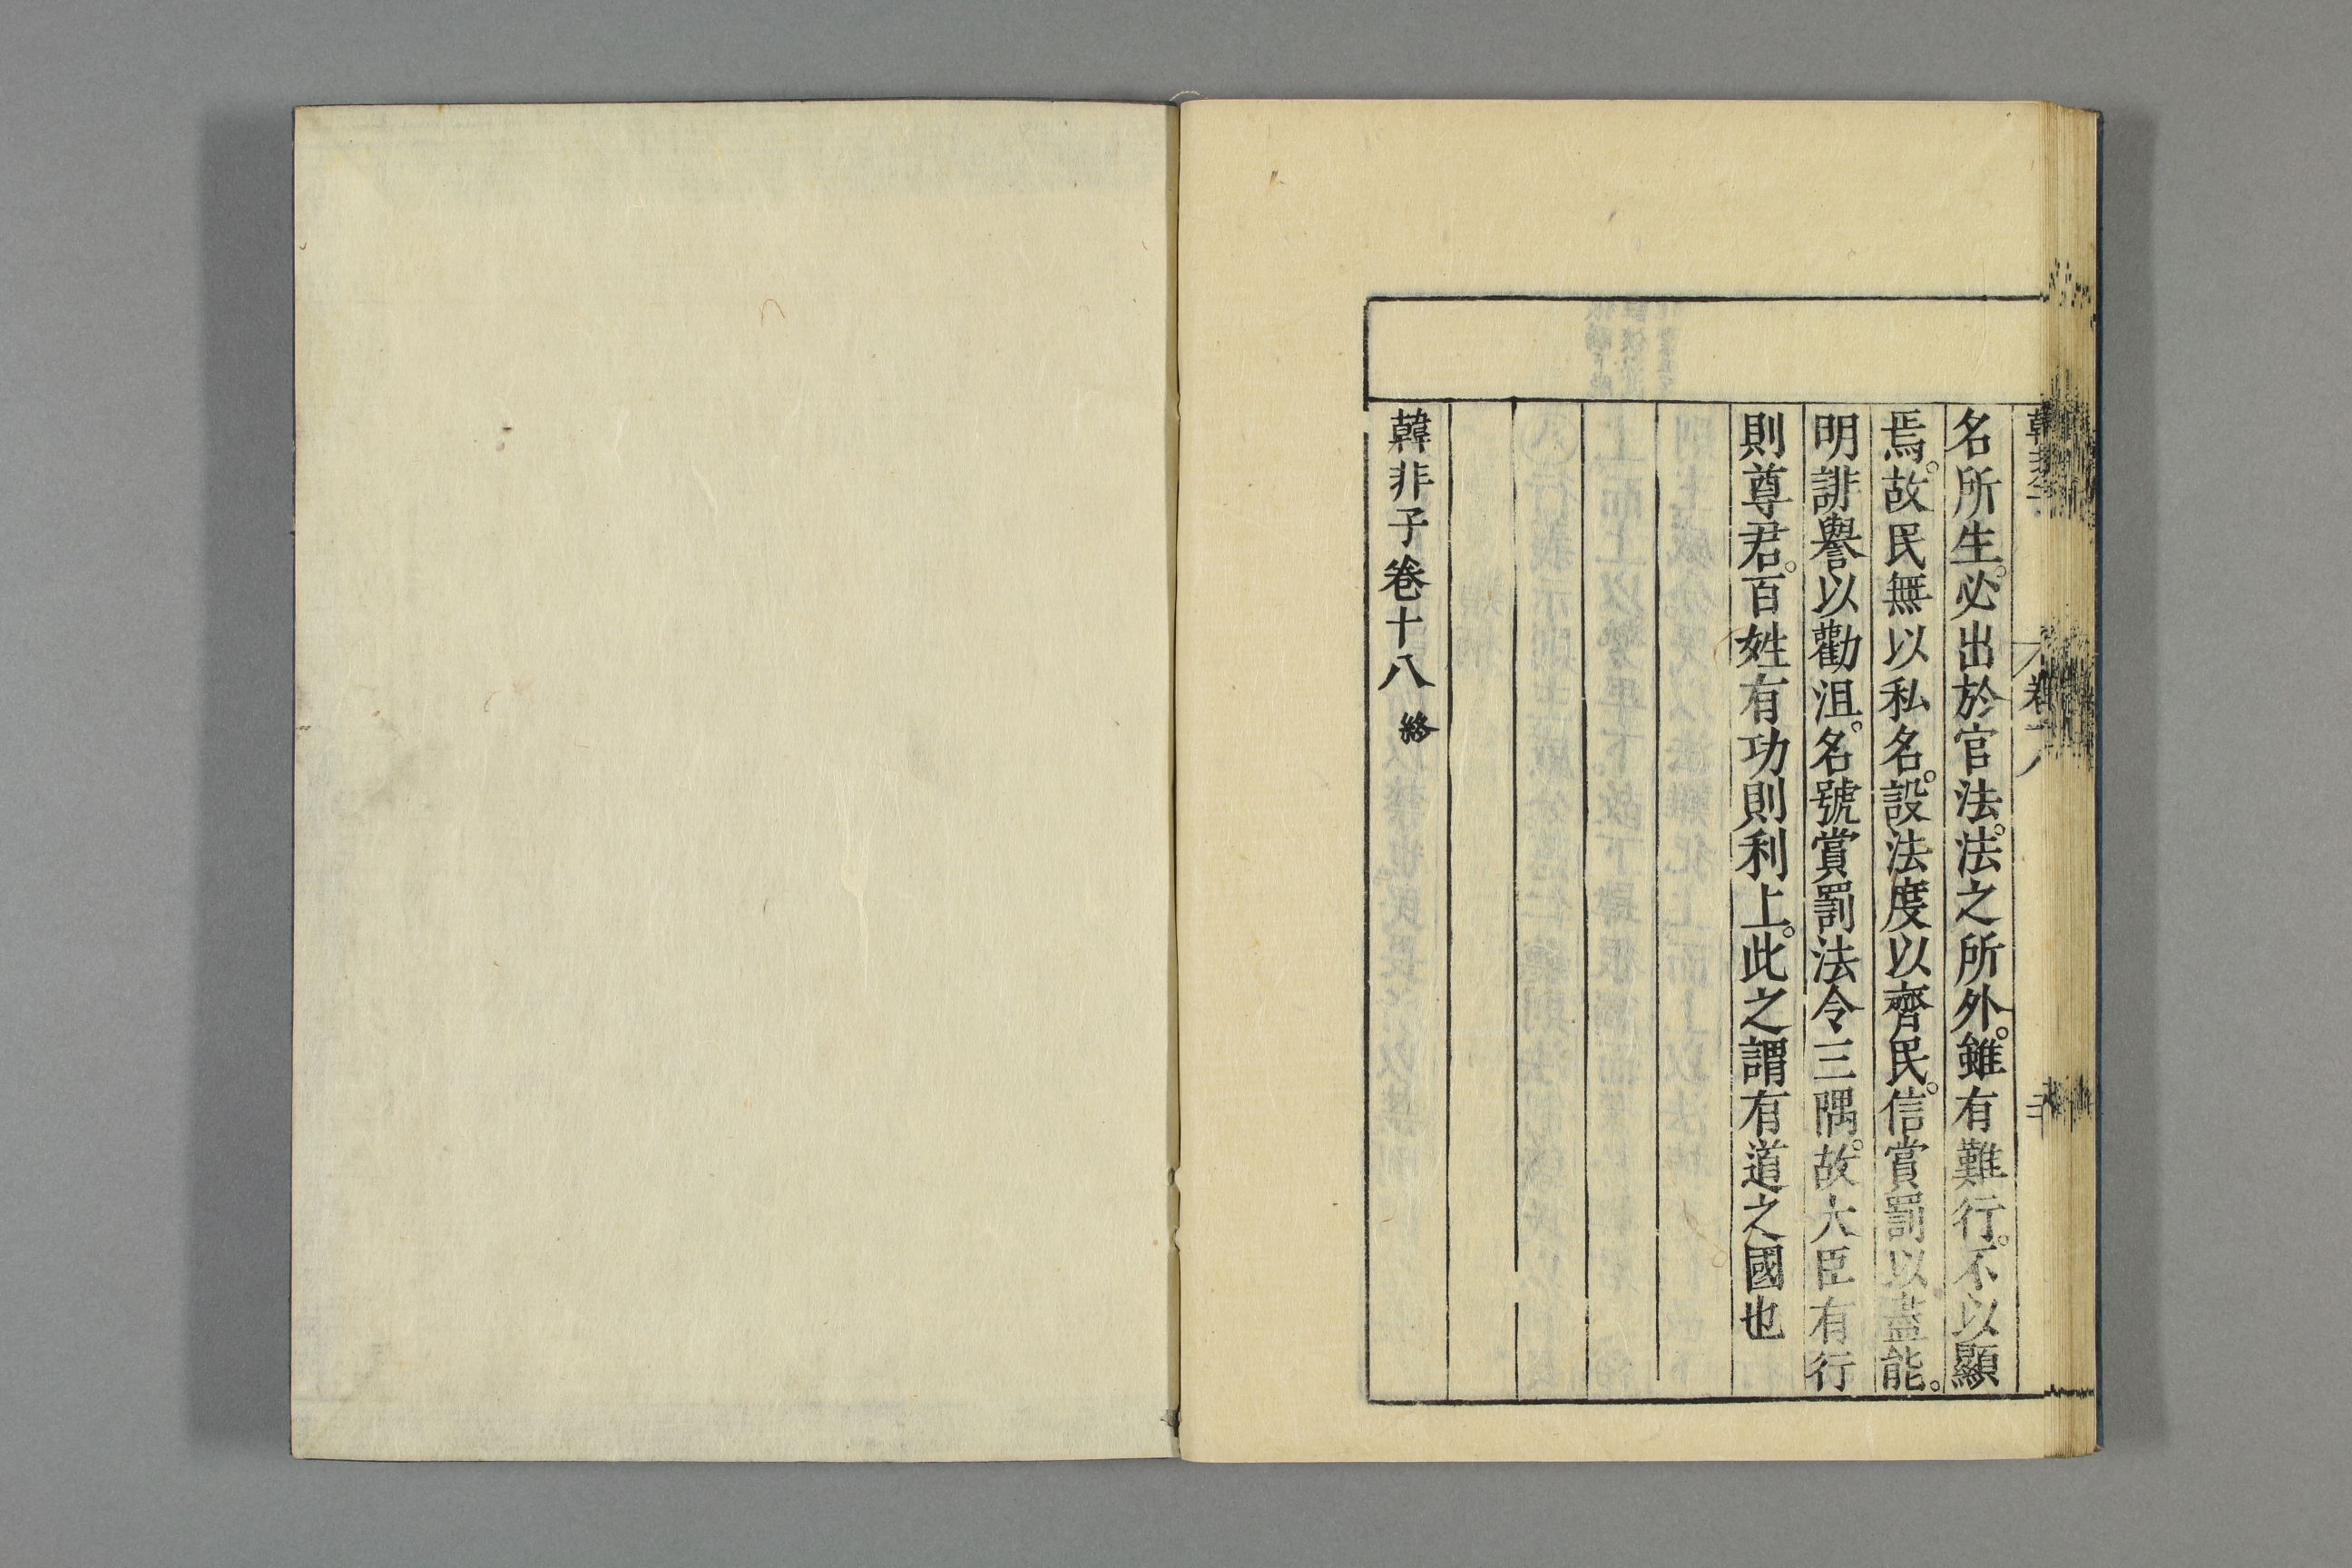 名所生。必出於官法。法之所外。雖有難行。不以顯
焉。故民無以私名。設法度以齊民。信賞罰以盡能。
明誹譽以勸沮。名號賞罰法令三隅。故大臣有行
則尊君。百姓有功則利上。此之謂有道之國也
韓非子卷十八 終